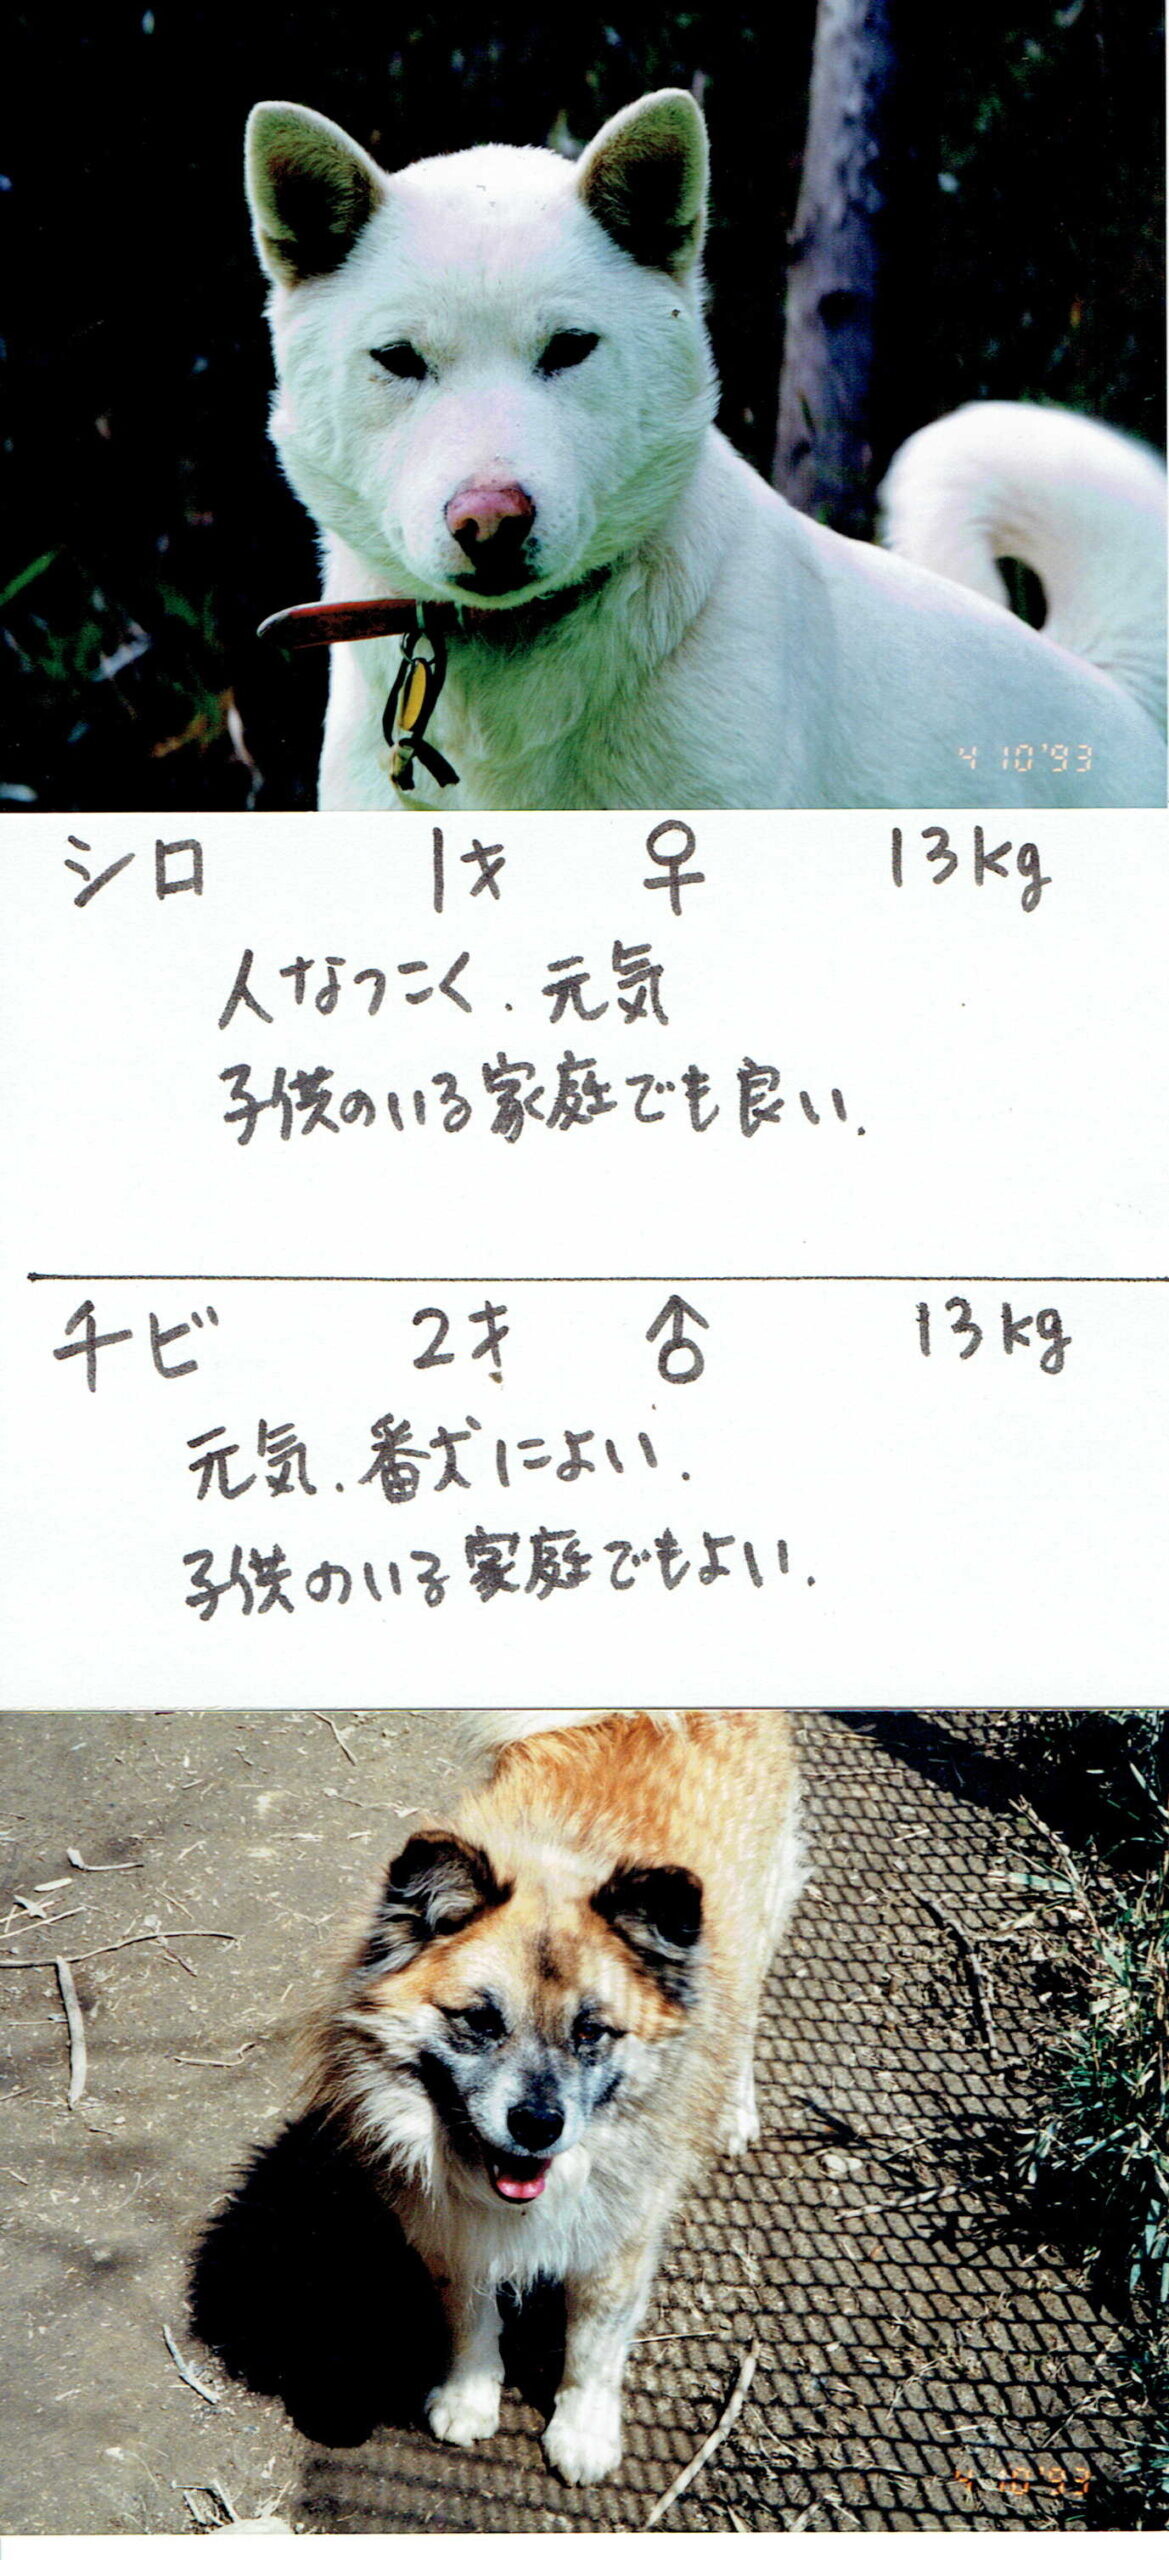 4 10'93
シロ 1才 ♀ 13kg
人なつこく、元気
子供のいる家庭でも良い。
チビ 2才 ♂ 13kg
元気、番犬によい。
子供のいる家庭でもよい。
4 10'93